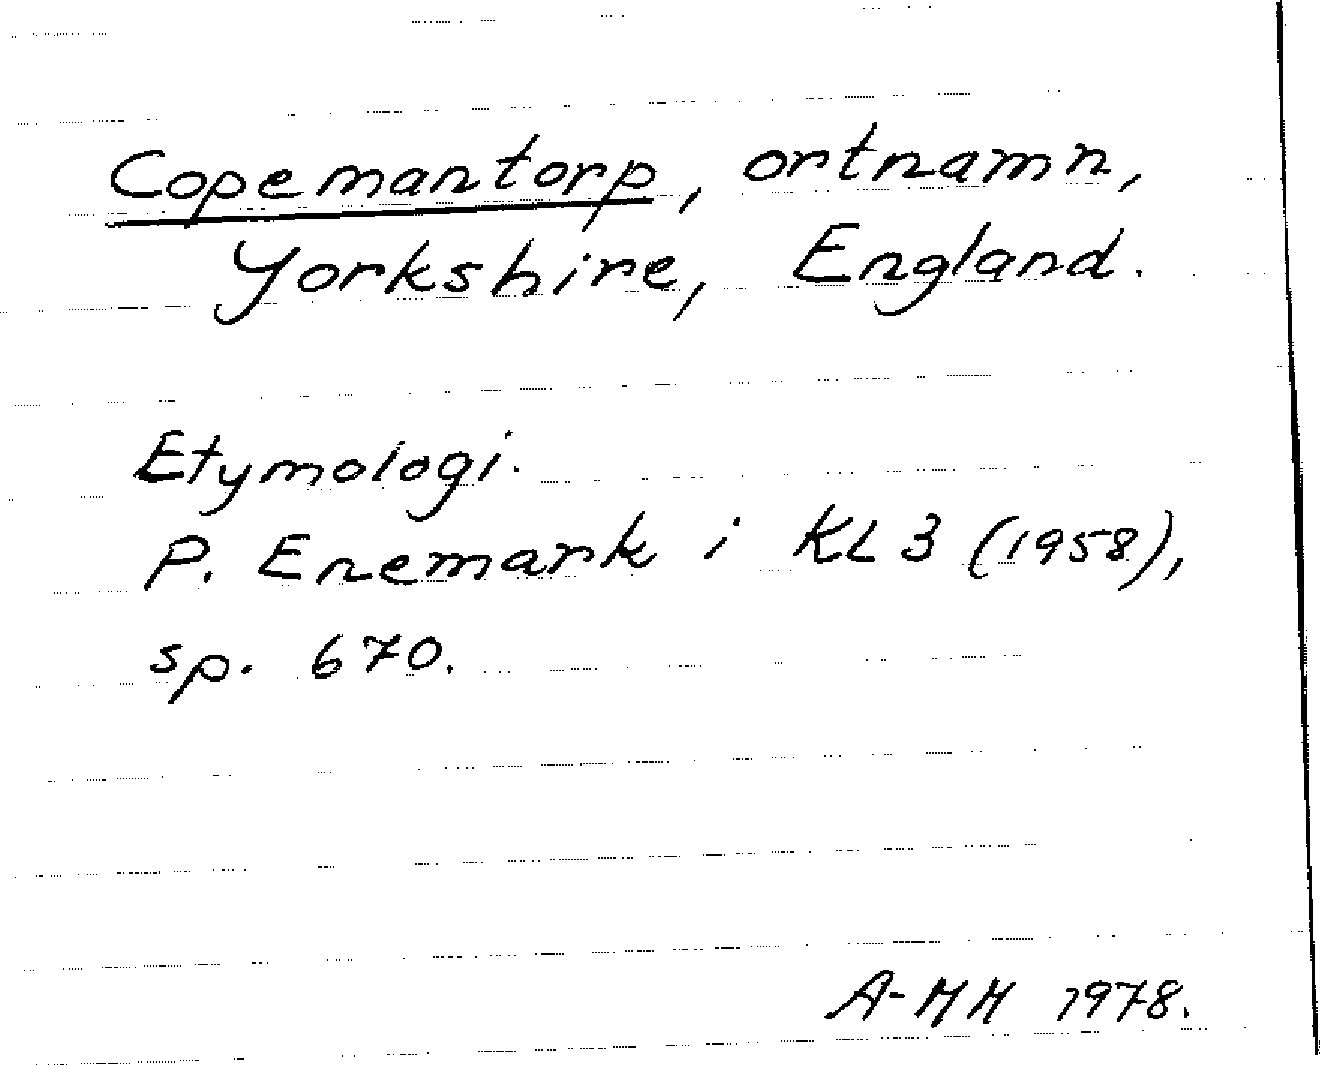 Copemantorp, ortnamn,
Yorkshire, England.
Etymologi.
P. Enemark i KL 3 (1958),
sp. 670.
A-MH 1978.